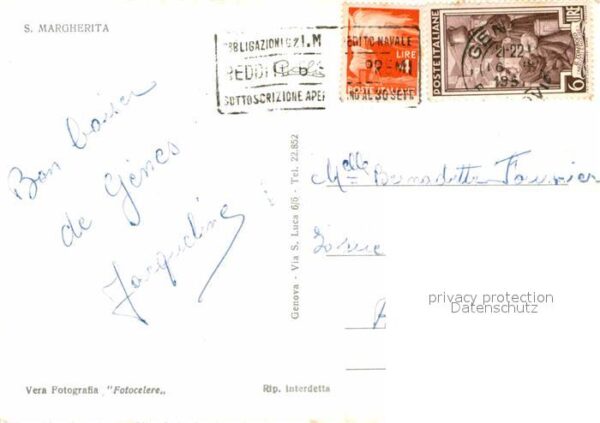 S. MARGHERITA
OBBLIGAZIONI I.M
REDDITO
SOTTOSCRIZIONE APER
CREDITO NAVALE
NO AL 30 SETT
LIRE
4
POSTE ITALIANE
LIRE
6
GENOVA
Bon baiser
de Gênes
Jacqueline
Genova - Via S. Luca 6/6 - Tel. 22.852
Melle Bernadette Fournier
privacy protection
Datenschutz
Vera Fotografia "Fotocelere„
Rip. interdetta